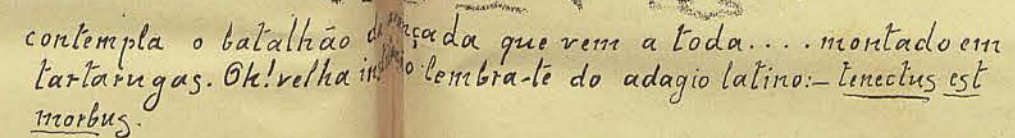 contempla o batalhão da avançada que vem a toda.... montado em
tartarugas. Oh! velha instituição lembra-te do adagio latino:- tenectus est
morbus.